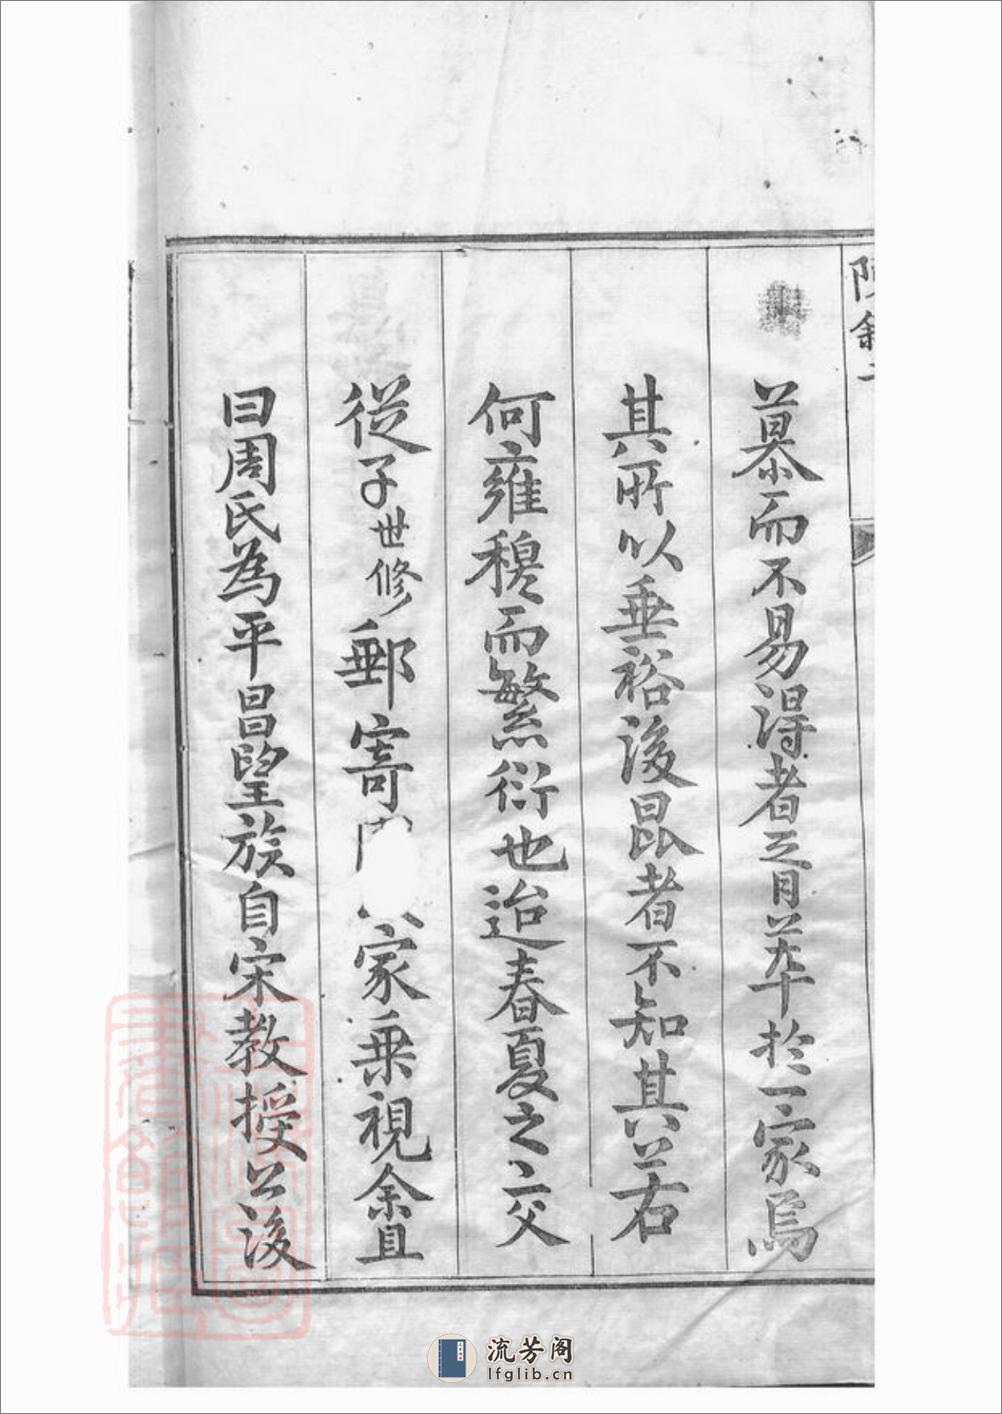 慕而不易得者三月萃於一家焉
其所以垂裕後昆者不知其若
何雍穆而繁衍也迨春夏之交
從子世修郵寄 家乗視余且
曰周氏為平昌望族自宋教授公後
流芳阁
lfglib.cn